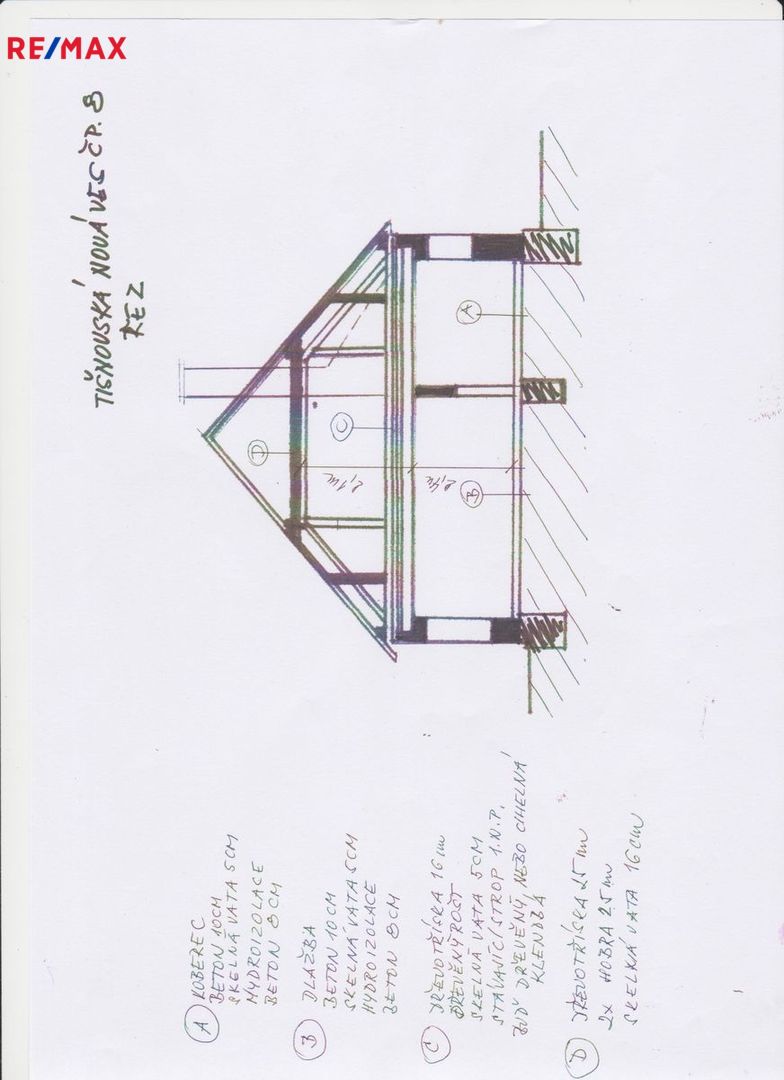 RE/MAX
TIŠNOVSKÁ NOVÁ VES ČP. 8
ŘEZ
A
C
D
B
2,1m
2,4m
A KOBEREC
BETON 10CM
SKELNÁ VATA 5CM
HYDROIZOLACE
BETON 8CM
B DLAŽBA
BETON 10CM
SKELNÁ VATA 5CM
HYDROIZOLACE
BETON 8CM
C DŘEVOTŘÍSKA 16mm
DŘEVĚNÝ ROŠT
SKELNÁ VATA 5CM
STÁVAJÍCÍ STROP 1.N.P.
BUĎ DŘEVĚNÝ, NEBO CIHELNÁ
KLENBA
D DŘEVOTŘÍSKA 25mm
2X HOBRA 25mm
SKELNÁ VATA 16CM